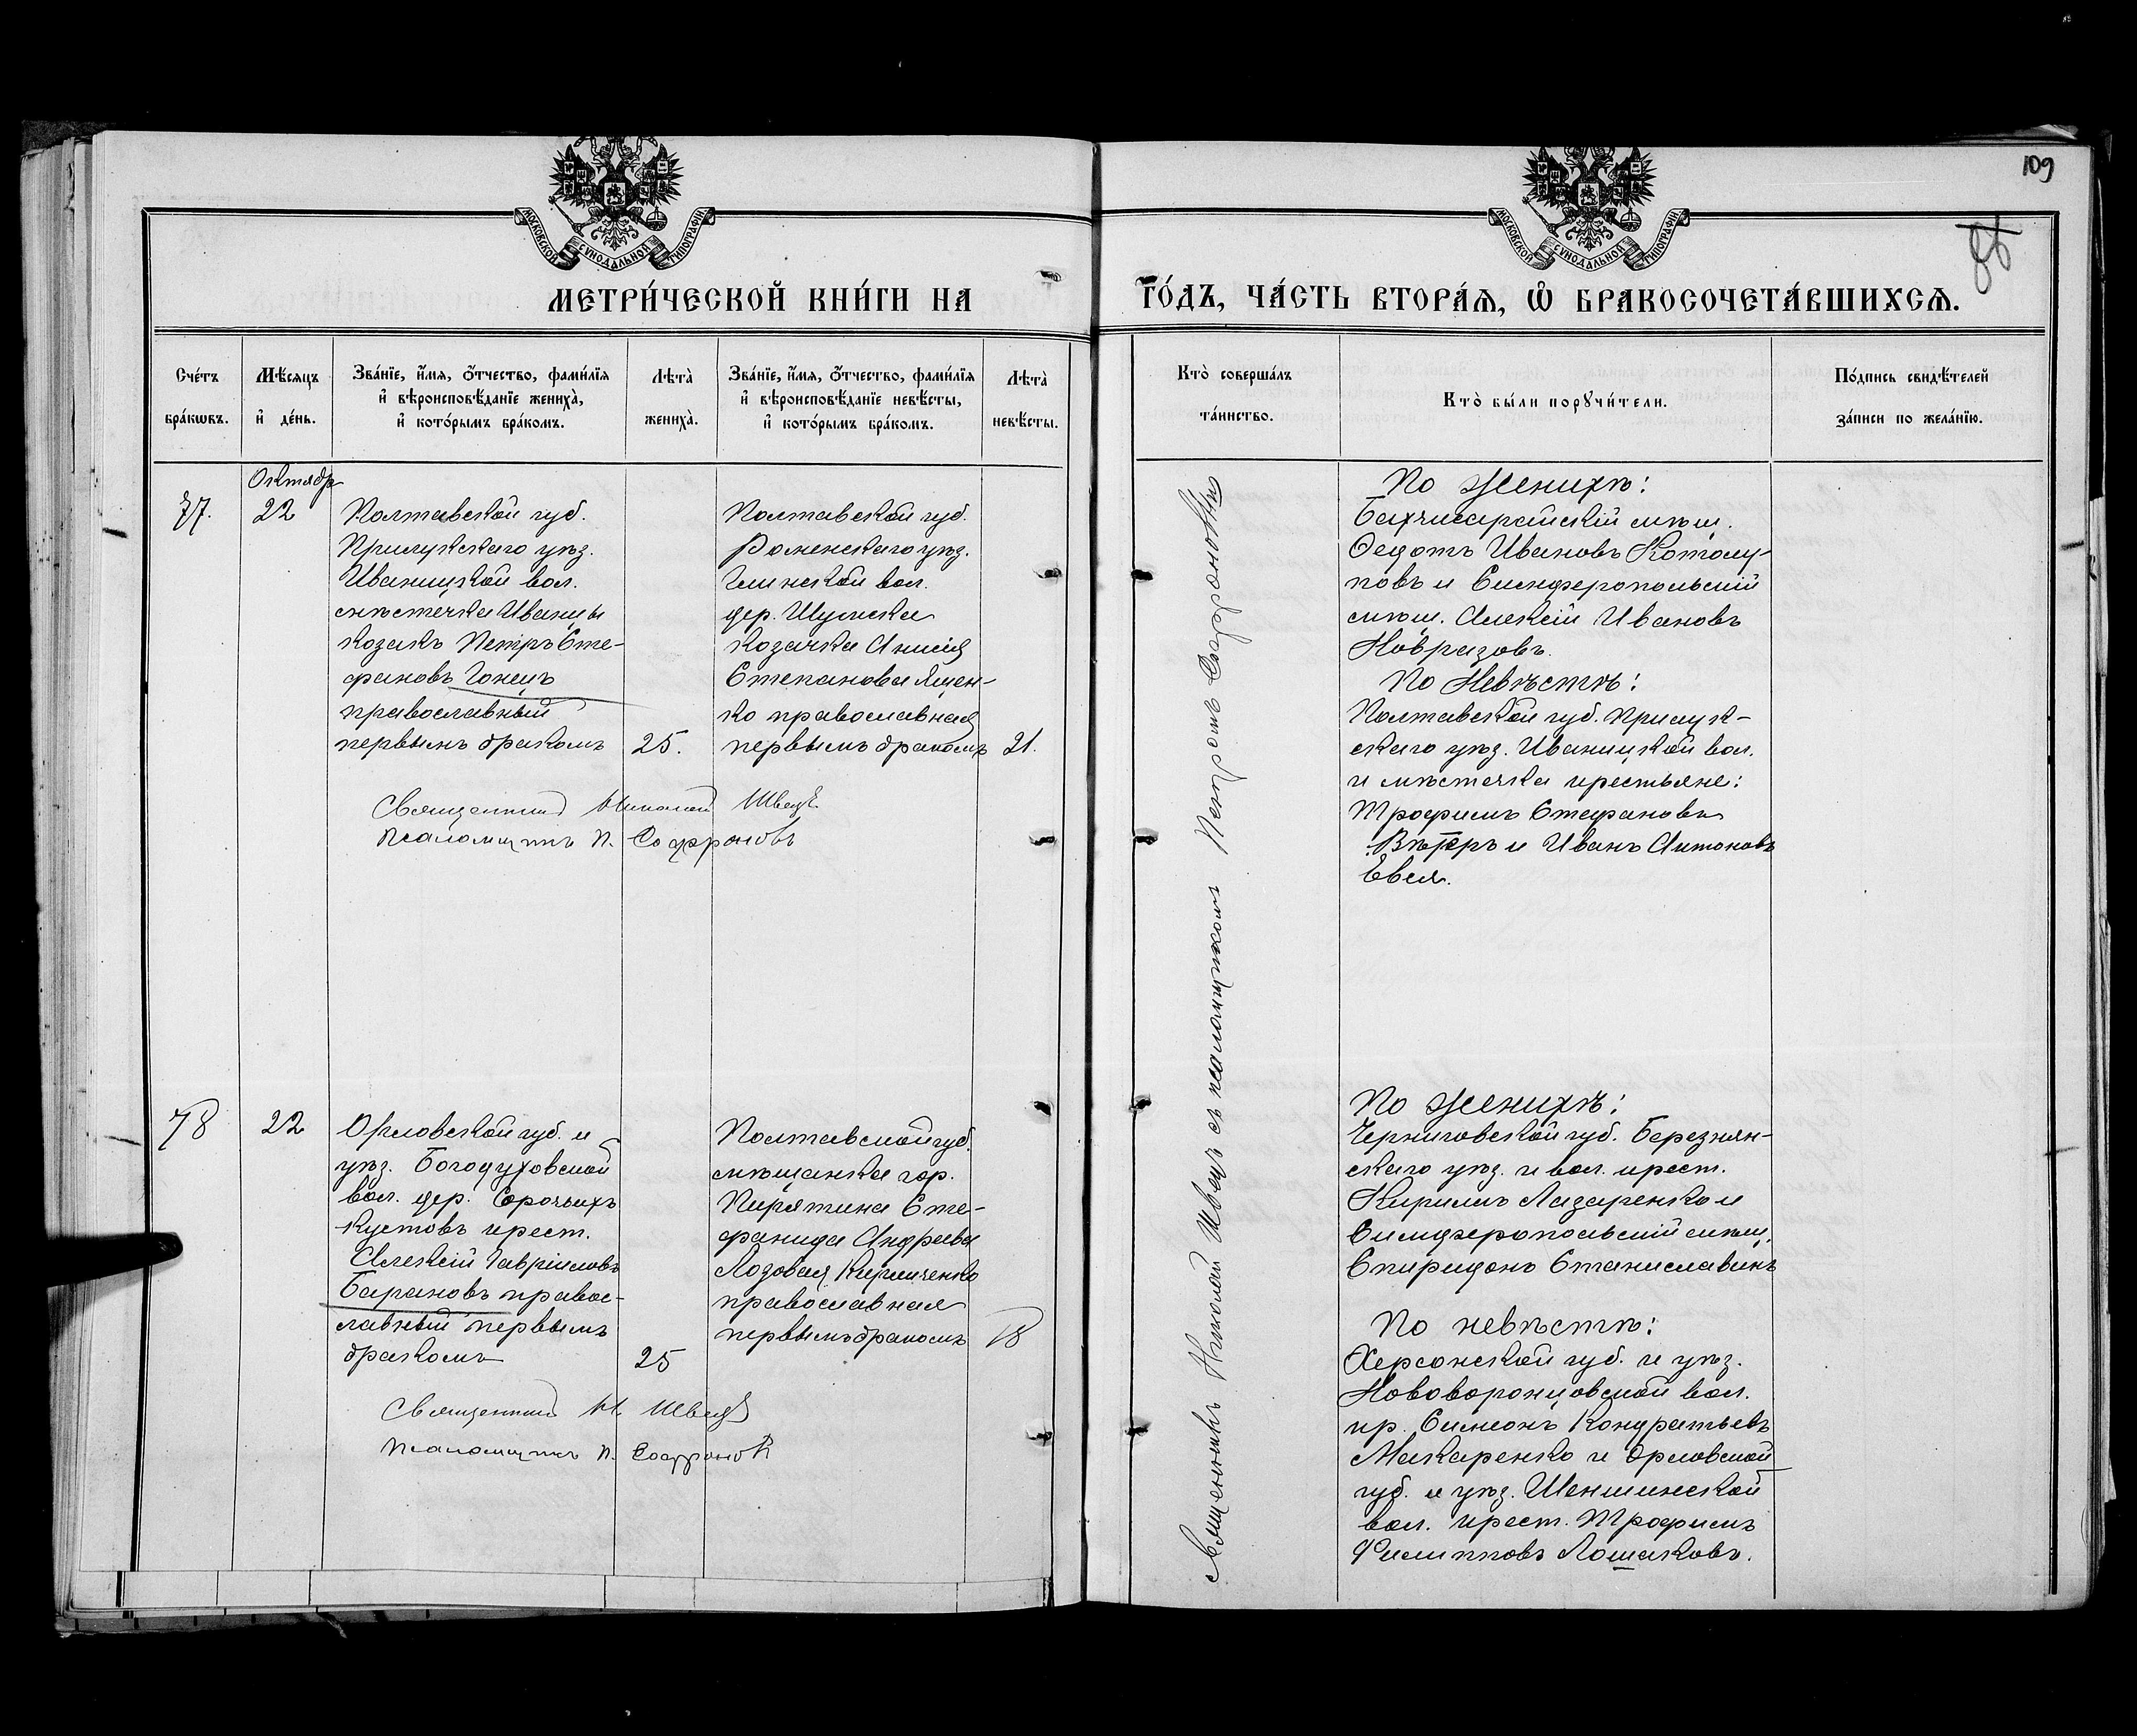 109
88
МОСКОВСКОЙ СѴНОДАЛЬНОЙ ТИПОГРАФІИ.
МОСКОВСКОЙ СѴНОДАЛЬНОЙ ТИПОГРАФІИ.
МЕТРИ́ЧЕСКОЙ КНИ́ГИ НА
ГО́ДЪ, ЧА́СТЬ ВТОРА́Я, Ѡ БРАКОСОЧЕТА́ВШИХСЯ.
Сче́тъ
бра́кѡвъ.
Мѣ́сяцъ
и҆ де́нь.
Зва́нїе, и҆́мя, ѻ҆́тчество, фами́лїя
и҆ вѣроисповѣ́данїе жениха̀,
и҆ кото́рымъ бра́комъ.
Лѣта̀
жениха̀.
Зва́нїе, и҆́мя, ѻ҆́тчество, фами́лїя
и҆ вѣроисповѣ́данїе невѣ́сты,
и҆ кото́рымъ бра́комъ.
Лѣта̀
невѣ́сты.
Кто̀ соверша́лъ
та́инство.
Кто̀ бы́ли порꙋчи́тели.
По́дпись свидѣ́телей
за́писи по жела́нїю.
Октябр
77.
22
Полтавской губ.
Прилукскаго уѣз.
Иваницкой вол.
мѣстечка Иваницы
козакъ Петръ Сте-
фановъ Гонецъ
православный
первымъ бракомъ
25.
Полтавской губ.
Роменскаго уѣз.
Глинской вол.
дер. Шумска
козачка Анисія
Степанова Яцен-
ко православная
первымъ бракомъ
21.
Священникъ Николай Швецъ
Псаломщикъ П. Софроновъ
Священникъ Николай Швецъ съ псаломщикомъ Петромъ Софроновымъ
По женихѣ:
Бахчисарайскій мѣщ.
Ѳедотъ Ивановъ Котолу-
повъ и Симферопольскій
мѣщ. Алексій Ивановъ
Новразовъ.
По Невѣстѣ:
Полтавской губ. Прилук-
скаго уѣз. Иваницкой вол.
и мѣстечка крестьяне:
Трофимъ Стефановъ
Вѣтръ и Иванъ Антоновъ
Евся.
78
22
Орловской губ. и
уѣз. Богодуховской
вол. дер. Сорочьихъ
Кустовъ крест.
Алексій Гавріиловъ
Барановъ правос-
лавный первымъ
бракомъ
25
Полтавской губ.
мѣщанка гор.
Пирятина Сте-
фанида Андреева
Лозовая Кириченко
православная
первымъ бракомъ
18
Священникъ Н. Швецъ
Псаломщикъ П. Софроновъ
По женихѣ:
Черниговской губ. Березнян-
скаго уѣз. и вол. крест.
Кириллъ Лазаренко и
Симферопольскій мѣщ.
Спиридонъ Станиславинъ
По невѣстѣ:
Херсонской губ. и уѣз.
Нововоронцовской вол.
кр. Симеонъ Кондратьевъ
Макаренко и Орловской
губ. и уѣз. Шеншинской
вол. крест. Трофимъ
Филипповъ Лошаковъ.